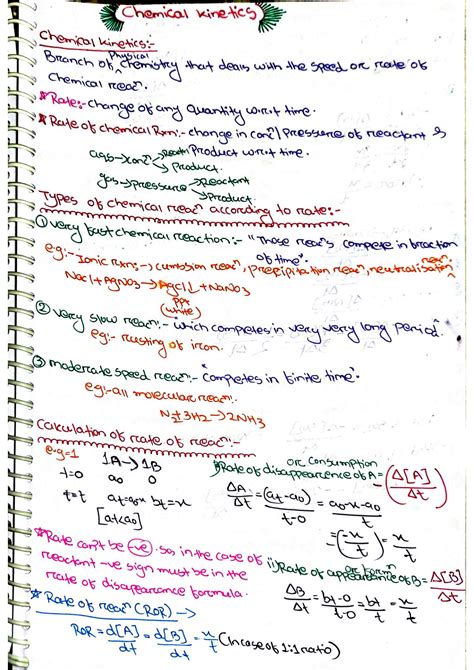 Chemical kinetics
Chemical kinetics:-
Branch of Physical chemistry that deals with the speed or rate of
Chemical reacⁿ.
* Rate:- change of any Quantity w.r.t time.
* Rate of chemical Rxn:- change in concⁿ/Pressure of reactant &
Product w.r.t time.
aqs → concⁿ → Reactn
Product.
gas → pressure → Reactant
Product.
Types of chemical reacⁿ according to rate:-
① very fast chemical reaction:- "Those reacⁿs compete in fraction
of time".
eg:- Ionic Rxns:-, reacⁿ, precipitation reacⁿ, neutralisation reacⁿ
NaCl + AgNO3 → AgCl↓ + NaNO3
PPt
(white)
② very slow reacⁿ:- which competes in very very long period.
eg:- rusting of iron.
③ moderate speed reacⁿ:- "Competes in finite time"
eg:- all molecular reacⁿ.
N+3H2 → 2NH3
Calculation of rate of reacⁿ:-
e.g=1 1A → 1B
t=0 a0 0
t=t at=a0-x bt=x
[at<a0]
i) Rate of disappearence or consumption of A = (Δ[A]/Δt)
ΔA/Δt = (at-a0)/t-0 = a0-x-a0/t
= (-x/t) = x/t
* Rate can't be -ve so, in the case of
reactant -ve sign must be in the
rate of disappearance formula.
ii) Rate of appearance or formⁿ of B = Δ[B]/Δt
ΔB/Δt = bt-0/t-0 = bt/t = x/t
* Rate of reacⁿ (ROR) →
ROR = d[A]/dt = d[B]/dt = x/t (In case of 1:1 ratio)